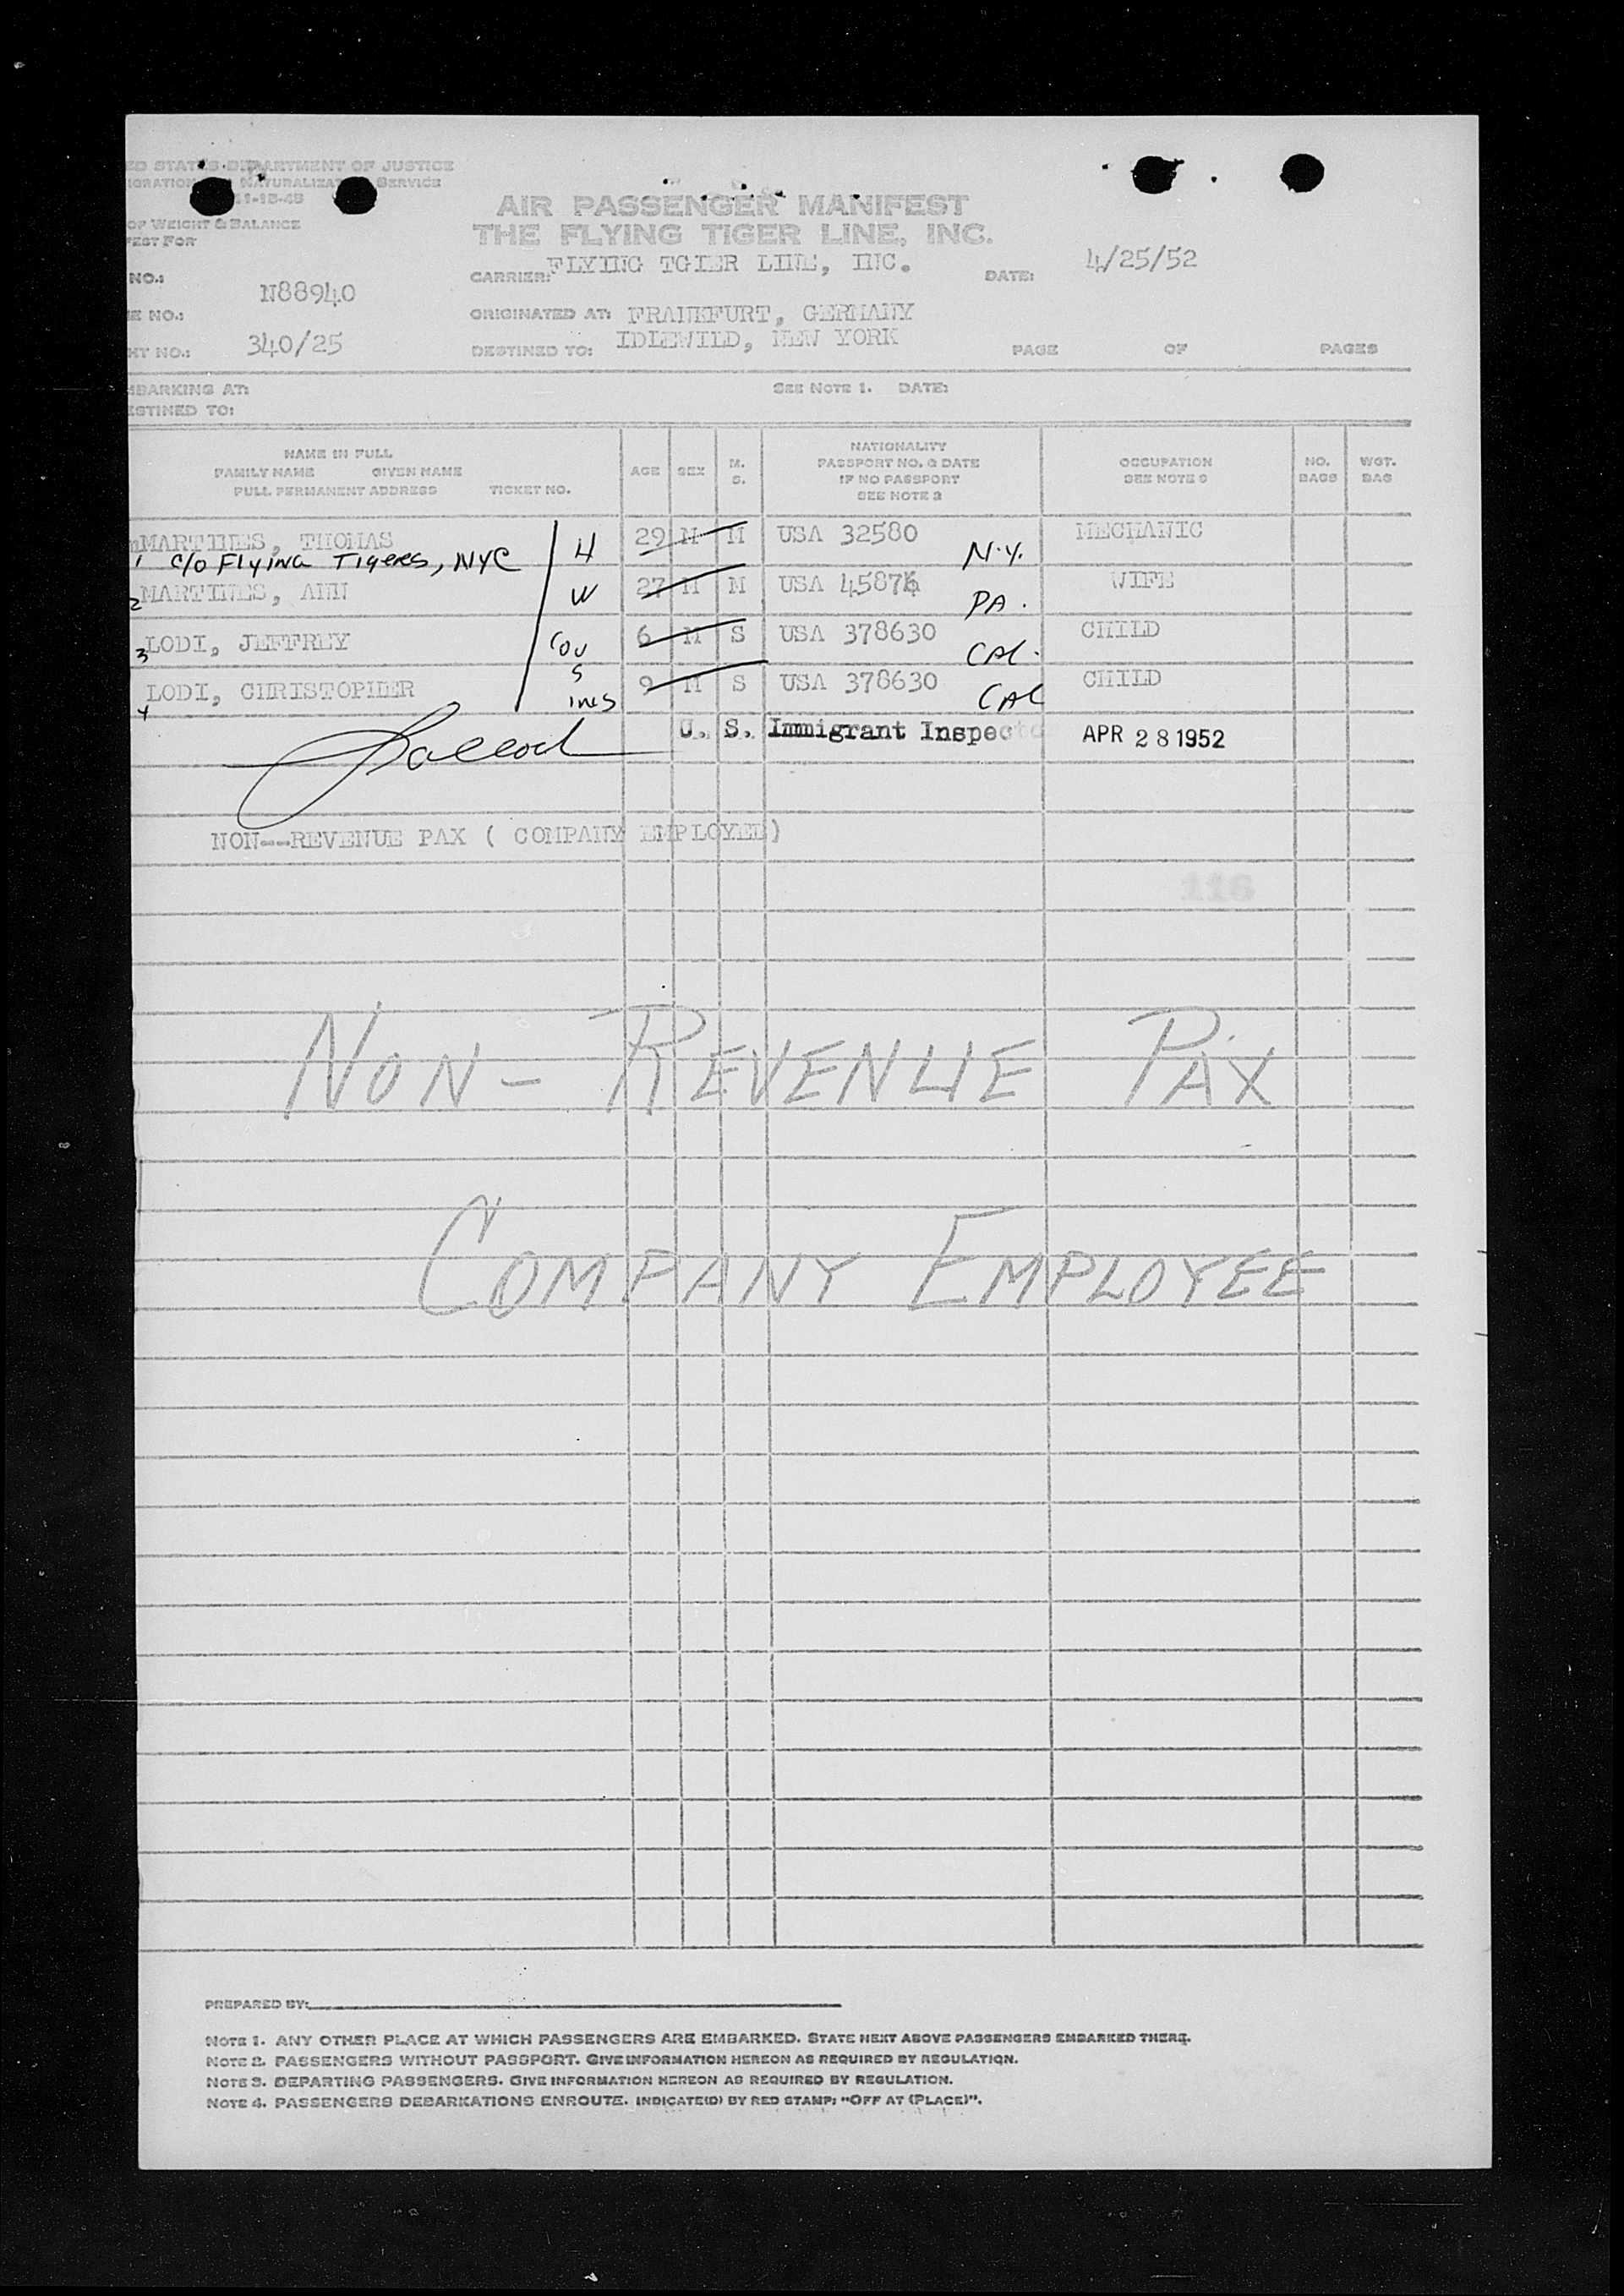 ED STATES DEPARTMENT OF JUSTICE
IGRATION NATURALIZATION SERVICE
11-15-48
OF WEIGHT & BALANCE
FEST FOR
AIR PASSENGER MANIFEST
THE FLYING TIGER LINE, INC.
NO.: N88940 CARRIER: FLYING TGIER LINE, INC. DATE: 4/25/52
E NO.: ORIGINATED AT: FRANKFURT, GERMANY
HT NO.: 340/25 DESTINED TO: IDLEWILD, NEW YORK PAGE OF PAGES
MBARKING AT: SEE NOTE 1. DATE:
ESTINED TO:
NAME IN FULL
FAMILY NAME GIVEN NAME
FULL PERMANENT ADDRESS TICKET NO.
AGE SEX M. S.
NATIONALITY
PASSPORT NO. & DATE
IF NO PASSPORT
SEE NOTE 2
OCCUPATION
SEE NOTE 3
NO. BAGS
WGT. BAG
MARTINES, THOMAS H 29 M M USA 32580 N.Y. MECHANIC
1 c/o Flying Tigers, NYC
2 MARTINES, ANN W 27 M M USA 45874 PA. WIFE
3 LODI, JEFFREY Cou 6 M S USA 378630 CAL. CHILD
4 LODI, CHRISTOPHER S ins 9 M S USA 378630 CAL CHILD
U. S. Immigrant Inspector APR 28 1952
NON--REVENUE PAX ( COMPANY EMPLOYEE)
116
NON- REVENUE PAX
COMPANY EMPLOYEE
PREPARED BY:
NOTE 1. ANY OTHER PLACE AT WHICH PASSENGERS ARE EMBARKED. STATE NEXT ABOVE PASSENGERS EMBARKED THERE.
NOTE 2. PASSENGERS WITHOUT PASSPORT. GIVE INFORMATION HEREON AS REQUIRED BY REGULATION.
NOTE 3. DEPARTING PASSENGERS. GIVE INFORMATION HEREON AS REQUIRED BY REGULATION.
NOTE 4. PASSENGERS DEBARKATIONS ENROUTE. INDICATE(D) BY RED STAMP: "OFF AT (PLACE)".